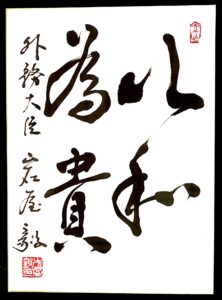 以和
為貴
外務大臣 岩屋 毅